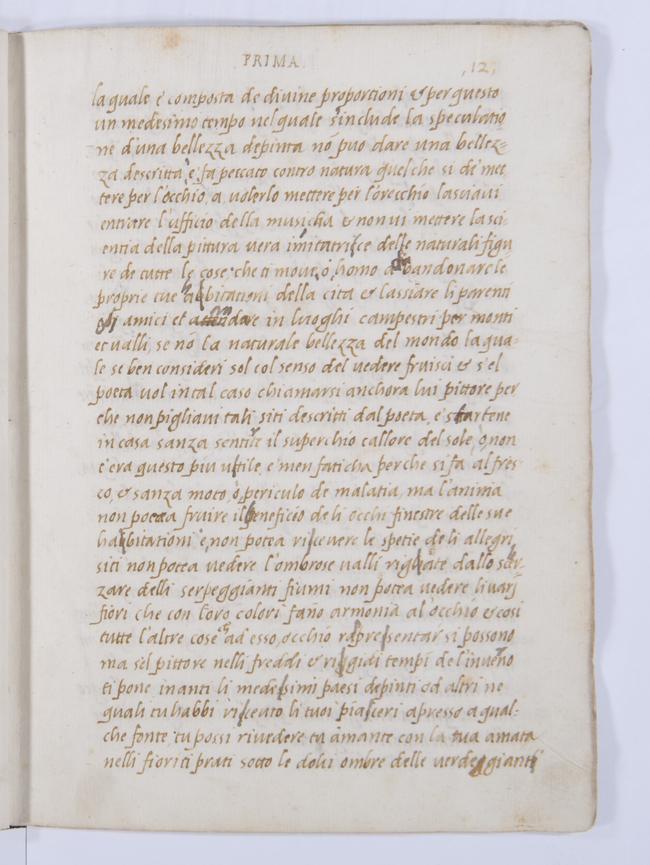 PRIMA
,12,
la quale è composta de divine proportioni & per questo
un medesimo tempo nel quale s'include la speculatio
ne d'una bellezza depinta nō puo dare una bellez-
za descritta, e fa peccato contro natura quel che si de met
tere per l'occhio, a volerlo mettere per l'orecchio lasciavi
entrare l'ufficio della musicha & non vi mettere la sci-
entia della pittura vera imitatrice delle naturali figu
re de tutte le cose che ti move, ò homo abandonare le
proprie tue abitationi della cita & lassiare li parenti
amici et in luoghi campestri per monti
et valli, se nō la naturale bellezza del mondo la qua-
le se ben consideri sol col senso del vedere fruisci & s'el
poeta vol in tal caso chiamarsi anchora lui pittore per
che non pigliavi tali siti descritti dal poeta, e startene
in casa sanza sentire il superchio callore del sole, ò non
t'era questo piu utile, e men faticha perche si fa al fres-
co, & sanza moto ò periculo de malatia, ma l'anima
non potea fruire il beneficio de li occhi finestre delle sue
habitationi e non potea ricevere le spetie de li allegri
siti non potea vedere l'ombrose valli rigate dallo scer
zare delli serpeggianti fiumi non potea vedere li varj
fiori che con loro colori fano armonia al occhio & cosi
tutte l'altre cose ad esso occhio rapresentar si possono
ma s'el pittore nelli freddi & rigidi tempi de l'inverno
ti pone inanti li medesimi paesi depinti ed altri ne
quali tu habbi riceuto li tuoi piaceri apresso a qual-
che fonte, tu possi rivedere tu amante con la tua amata
nelli fioriti prati sotto le dolci ombre delle verdeggianti